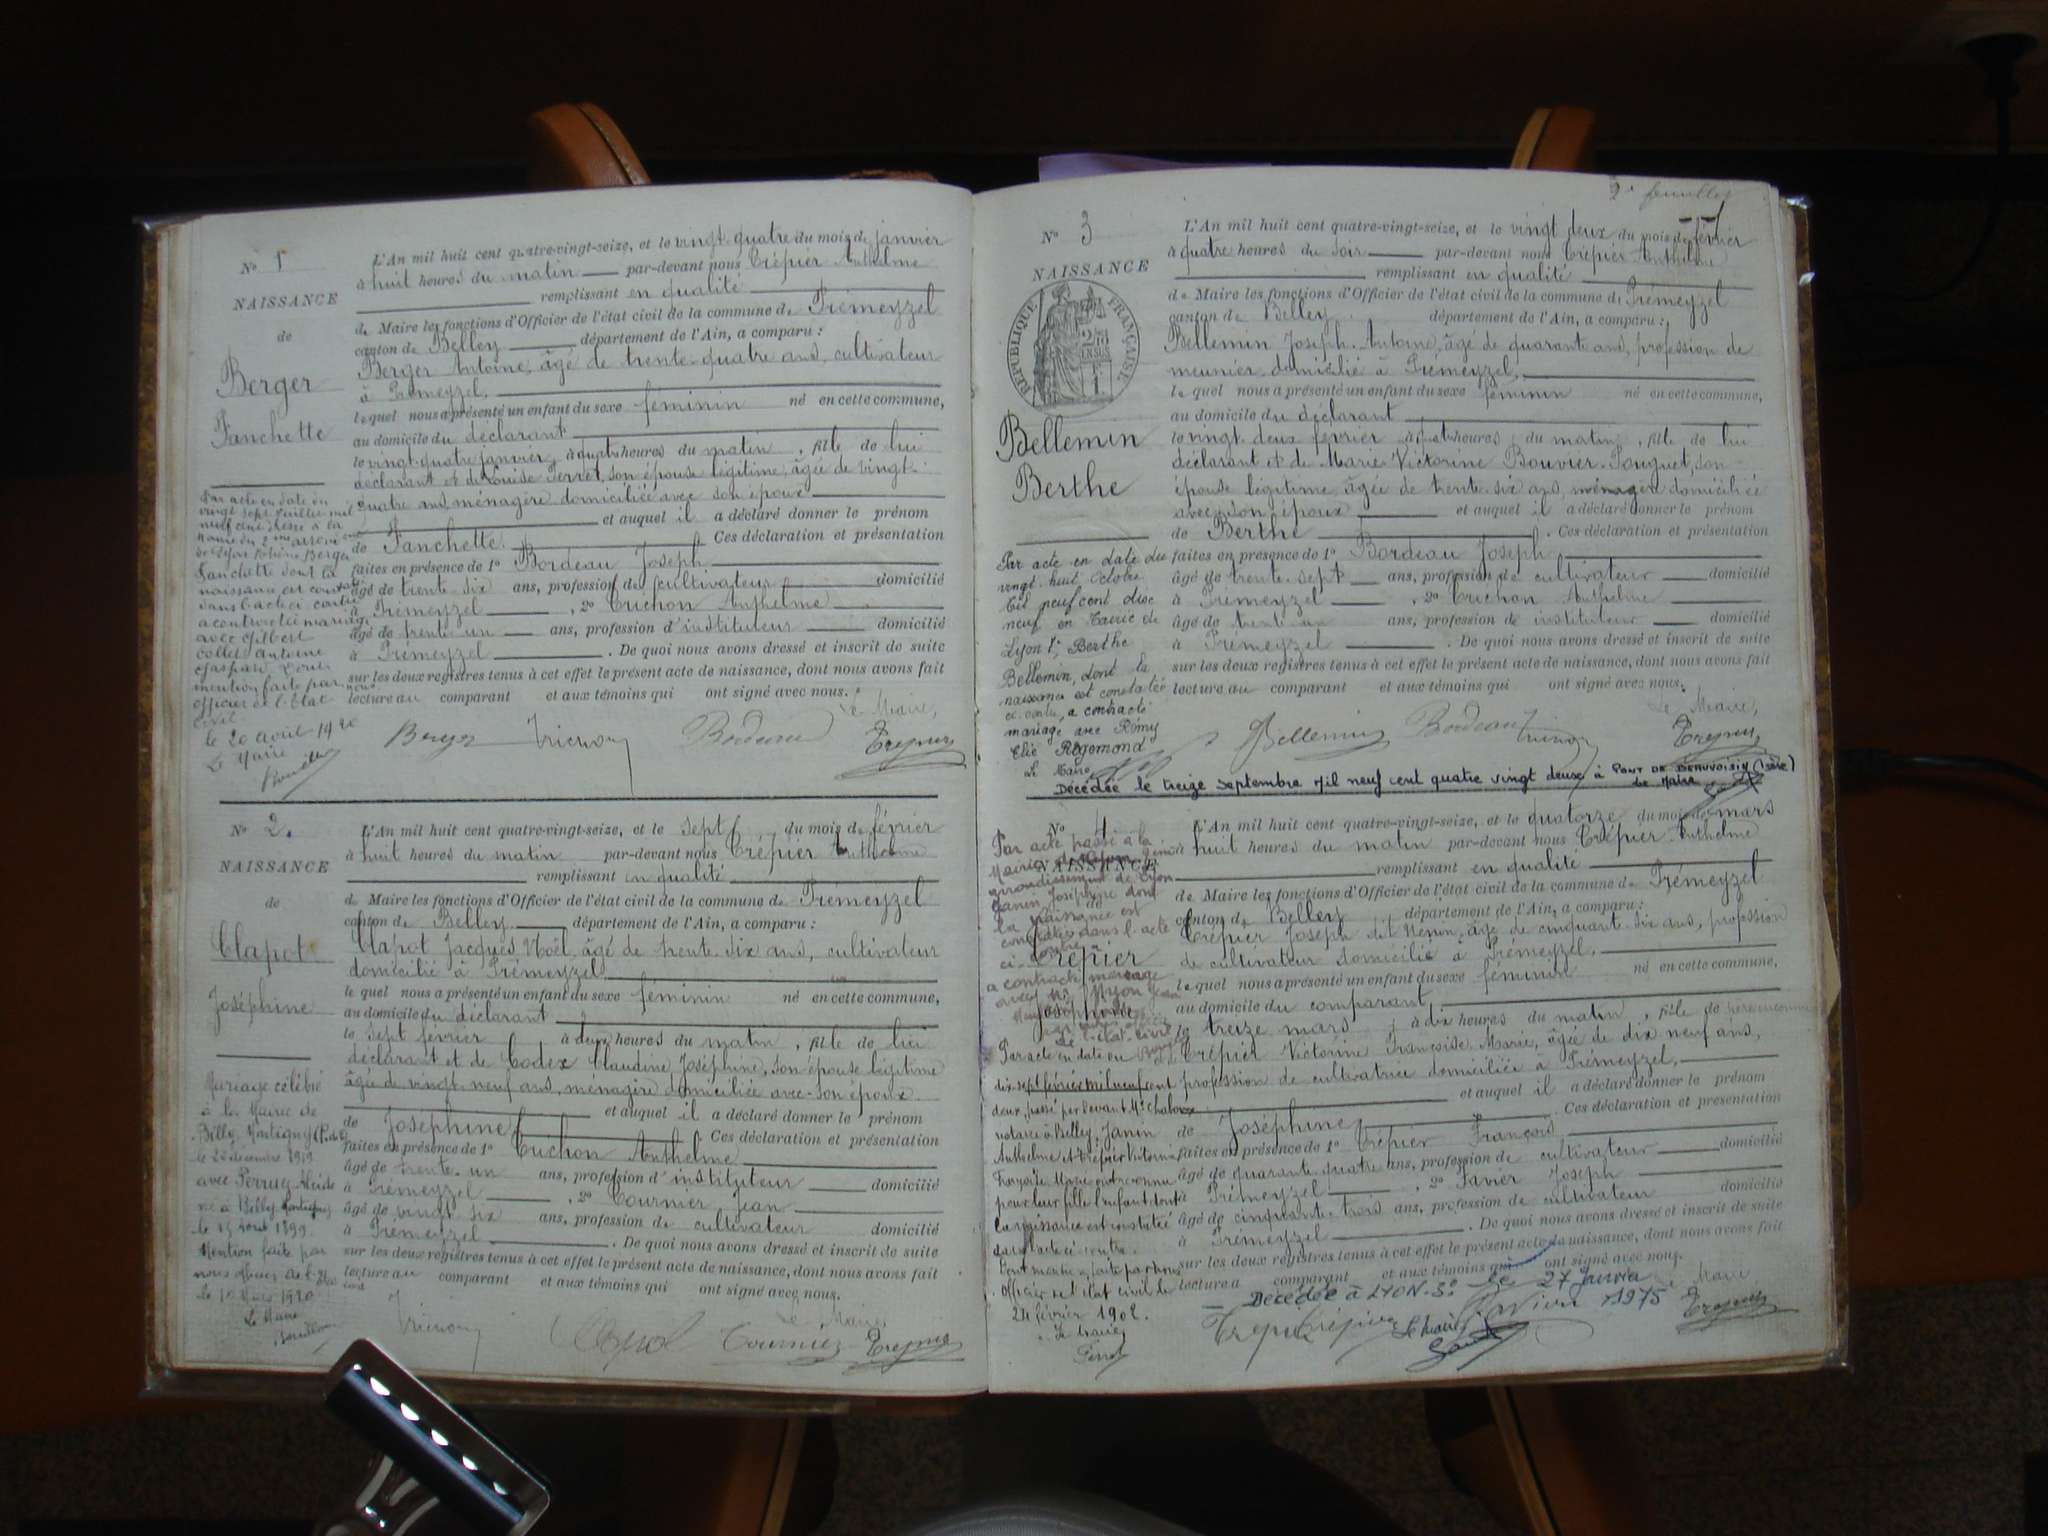 N° 1
NAISSANCE
de
Berger
Fanchette
L'An mil huit cent quatre-vingt-seize, et le vingt quatre du mois de janvier
à huit heures du matin par-devant nous Trépier Anthelme
remplissant en qualité
de Maire les fonctions d'Officier de l'état civil de la commune de Prémeyzel
canton de Belley département de l'Ain, a comparu :
Berger Antoine, âgé de trente-quatre ans, cultivateur
à Prémeyzel,
lequel nous a présenté un enfant du sexe féminin né en cette commune,
au domicile du déclarant
le vingt-quatre janvier, à quatre heures du matin, fille de lui
déclarant et de Louise Perret, son épouse légitime, âgée de vingt-
quatre ans, ménagère domiciliée avec son époux
et auquel il a déclaré donner le prénom
de Fanchette. Ces déclaration et présentation
faites en présence de 1° Bordeau Joseph
âgé de trente six ans, profession de cultivateur domicilié
à Prémeyzel, 2° Trichon Anthelme
âgé de trente un ans, profession d'instituteur domicilié
à Prémeyzel. De quoi nous avons dressé et inscrit de suite
sur les deux registres tenus à cet effet le présent acte de naissance, dont nous avons fait
lecture au comparant et aux témoins qui ont signé avec nous.
Le Maire,
Berger Trichon Bordeau Trepier
Par acte en date du
vingt sept juillet mil
neuf cent
mairie du 2me arron
de Lyon Berger
Fanchette dont la
naissance est constatée
dans l'acte ci contre
a contracté mariage
avec Gilbert
Collet Antoine
Gaspard Dont
mention faite par nous
officier de l'Etat
civil
le 20 août 1920
Le Maire
N° 2.
NAISSANCE
de
Clapot
Joséphine
L'An mil huit cent quatre-vingt-seize, et le sept du mois de février
à huit heures du matin par-devant nous Trépier Anthelme
remplissant en qualité
de Maire les fonctions d'Officier de l'état civil de la commune de Prémeyzel
canton de Belley département de l'Ain, a comparu :
Clapot Jacques Noël, âgé de trente-six ans, cultivateur
domicilié à Prémeyzel
lequel nous a présenté un enfant du sexe féminin né en cette commune,
au domicile du déclarant
le sept février à deux heures du matin, fille de lui
déclarant et de Codex Claudine Joséphine, son épouse légitime
âgée de vingt neuf ans, ménagère domiciliée avec son époux
et auquel il a déclaré donner le prénom
de Joséphine. Ces déclaration et présentation
faites en présence de 1° Trichon Anthelme
âgé de trente-un ans, profession d'instituteur domicilié
à Prémeyzel, 2° Tournier Jean
âgé de vingt six ans, profession de cultivateur domicilié
à Prémeyzel. De quoi nous avons dressé et inscrit de suite
sur les deux registres tenus à cet effet le présent acte de naissance, dont nous avons fait
lecture au comparant et aux témoins qui ont signé avec nous.
Le Maire,
Trichon Clapot Tournier Trepier
Mariage célébré
à la Mairie de
Billy Montigny (P. de C)
le 22 décembre 1919
avec Perrug
né à Billy Montigny
le 15 août 1899
Mention faite par
nous officier de l'état
civil
le 1920
Le Maire
2e feuillet
N° 3
NAISSANCE
RÉPUBLIQUE FRANÇAISE
Bellemin
Berthe
L'An mil huit cent quatre-vingt-seize, et le vingt deux du mois de février
à quatre heures du soir par-devant nous Trépier Anthelme
remplissant en qualité
de Maire les fonctions d'Officier de l'état civil de la commune de Prémeyzel
canton de Belley département de l'Ain, a comparu :
Bellemin Joseph-Antoine, âgé de quarante ans, profession de
meunier domicilié à Prémeyzel,
lequel nous a présenté un enfant du sexe féminin né en cette commune,
au domicile du déclarant
le vingt-deux février à quatre heures du matin, fille de lui
déclarant et de Marie-Victorine Bouvier-Pouguet, son
épouse légitime, âgée de trente-six ans, ménagère domiciliée
avec son époux et auquel il a déclaré donner le prénom
de Berthe. Ces déclaration et présentation
faites en présence de 1° Bordeau Joseph
âgé de trente-sept ans, profession de cultivateur domicilié
à Prémeyzel, 2° Trichon Anthelme
âgé de trente un ans, profession de instituteur domicilié
à Prémeyzel. De quoi nous avons dressé et inscrit de suite
sur les deux registres tenus à cet effet le présent acte de naissance, dont nous avons fait
lecture au comparant et aux témoins qui ont signé avec nous.
Le Maire,
Bellemin Bordeau Trichon Trepier
Par acte en date du
vingt-huit Octobre
mil neuf cent dix
neuf en Mairie de
Lyon 1er, Berthe
Bellemin, dont la
naissance est constatée
ci-contre, a contracté
mariage avec Rémy
Elie Rogemond
Le Maire
Décédée le treize septembre mil neuf cent quatre vingt deux à PONT DE BEAUVOISIN (Isère)
Le Maire
N° 4
NAISSANCE
de
Trépier
Joséphine
L'An mil huit cent quatre-vingt-seize, et le quatorze du mois de mars
à huit heures du matin par-devant nous Trépier Anthelme
remplissant en qualité
de Maire les fonctions d'Officier de l'état civil de la commune de Prémeyzel
canton de Belley département de l'Ain, a comparu :
Trépier Joseph dit Nénon, âgé de cinquante-six ans, profession
de cultivateur domicilié à Prémeyzel,
lequel nous a présenté un enfant du sexe féminin né en cette commune,
au domicile du comparant,
le treize mars à dix heures du matin, fille de père inconnu
et de Trépier Victorine Françoise Marie, âgée de dix neuf ans,
profession de cultivatrice domiciliée à Prémeyzel,
et auquel il a déclaré donner le prénom
de Joséphine. Ces déclaration et présentation
faites en présence de 1° Trépier François
âgé de quarante quatre ans, profession de cultivateur domicilié
à Prémeyzel, 2° Favier Joseph
âgé de cinquante-trois ans, profession de cultivateur domicilié
à Prémeyzel. De quoi nous avons dressé et inscrit de suite
sur les deux registres tenus à cet effet le présent acte de naissance, dont nous avons fait
lecture a comparant et aux témoins qui ont signé avec nous.
Le Maire
Décédée à LYON 3e le 27 Janvier 1975
Le Maire
Trepier
Par acte passé à la
Mairie
arrondissement de Lyon
Janin Joséphine dont
la naissance est
constatée dans l'acte
ci-contre
a contracté mariage
avec
de l'état civil
Par acte en date du
dix-sept février mil neuf cent
deux, passé par devant Me Chaboux
notaire à Belley, Janin
Anthelme et Trépier Victorine
Françoise Marie ont reconnu
pour leur fille l'enfant dont
la naissance est constatée
dans l'acte ci contre.
Dont mention faite par nous
officier de l'état civil le
24 février 1902.
Le Maire
Perret